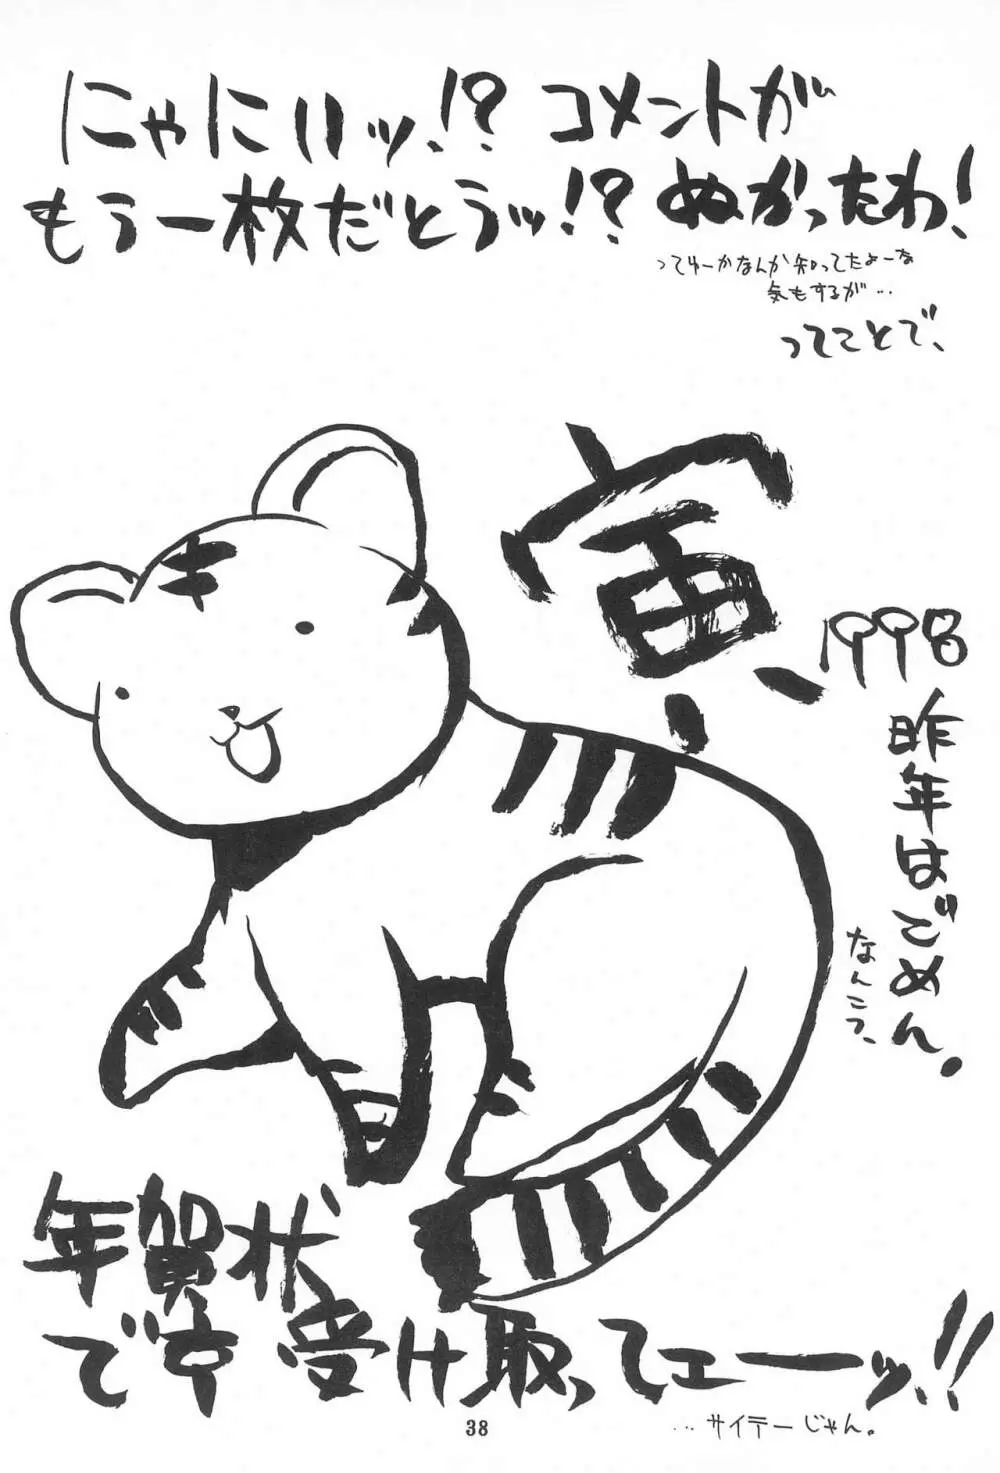 にゃにいッ!? コメントが
もう一枚だとうッ!? ぬかったわ!
ってゆーかなんか知ってたよーな
気もするが…
ってことで、
寅
1998
昨年はごめん。
なんつって、
年賀状
です 受け取ってェーッ!!
…サイテーじゃん。
38